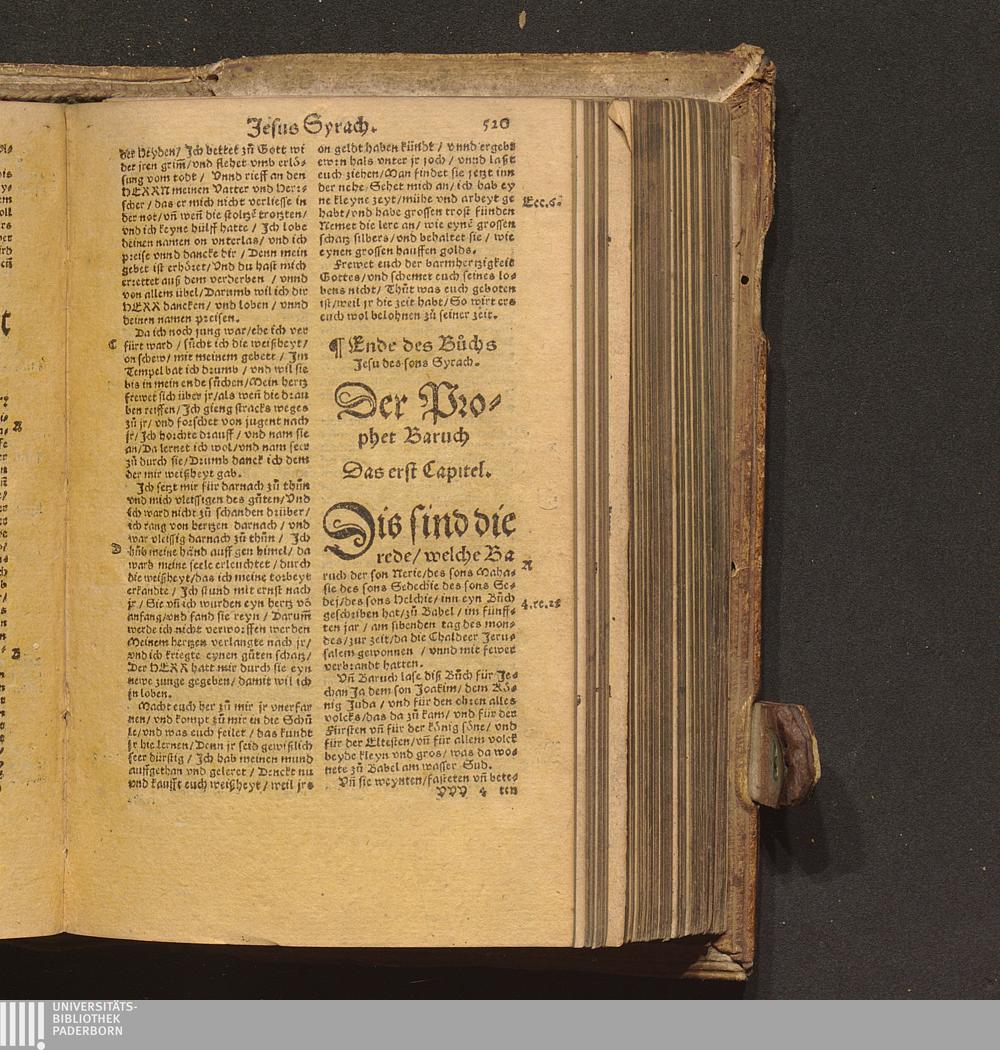 Jesus Syrach.
520
der Heyden/ Ich bettet zů Gott wi
der jren grim̃/vnd flehet vmb erlö-
sung vom todt/ Vnnd rieff an den
HERRN meinen Vatter vnd Herr-
scher/das er mich nicht verliesse in
der not/vñ weñ die stoltzẽ trotzten/
vnd ich keyne hülff hatte/ Ich lobe
deinen namen on vnterlas/vnd ich
preise vnnd dancke dir/ Denn mein
gebet ist erhöret/Vnd du hast mich
errettet auß dem verderben/ vnnd
von allem übel/Darumb wil ich dir
HERR dancken/ vnd loben/ vnnd
deinen namen preisen.
Da ich noch jung war/ehe ich ver
C
fürt ward/ sůcht ich die weißheyt/
on schew/ mit meinem gebett/ Im
Tempel bat ich drumb/ vnd wil sie
bis in mein ende sůchen/Mein hertz
frewet sich über jr/als weñ die drau
ben reiffen/Ich gieng stracks weges
zů jr/ vnd forschet von jugent nach
jr/Ich horchte drauff/ vnd nam sie
an/Da lernet ich wol/vnd nam seer
zů durch sie/Drumb danck ich dem
der mir weißheyt gab.
Ich setzt mir für darnach zů thůn
vnd mich vleissigen des gůten/Vnd
ich ward nicht zů schanden drüber/
ich rang von hertzen darnach/ vnd
war vleissig darnach zů thůn/ Ich
D
hůb meine händ auff gen himel/ da
ward meine seele erleuchtet/durch
die weißheyt/das ich meine torheyt
erkandte/ Ich stund mit ernst nach
jr/ Sie vñ ich wurden eyn hertz võ
anfang/vnd fand sie reyn/ Darum̃
werde ich nicht verworffen werden
Meinem hertzen verlangte nach jr/
vnd ich kriegte eynen gůten schatz/
Der HERR hatt mir durch sie eyn
newe zunge gegeben/ damit wil ich
jn loben.
Macht euch her zů mir jr vnerfar
nen/vnd kompt zů mir in die Schů
le/vnd was euch feilet/ das kundt
jr hie lernen/Denn jr seid gewißlich
seer dürstig/ Ich hab meinen mund
auffgethan vnd geleret/ Dencke nu
vnd kaufft euch weißheyt/ weil jrs
on geldt haben künndt/ vnnd ergebt
ewrn hals vnter jr joch/ vnnd laßt
euch ziehen/Man findet sie jetzt inn
der nehe Sehet mich an/ich hab ey
ne kleyne zeyt/mühe vnd arbeyt ge
Ecc.6.
habt/vnd habe grossen trost funden
Nemet die lere an/ wie eynẽ grossen
schatz silbers/vnd behaltet sie/ wie
eynen grossen hauffen golds.
Frewet euch der barmhertzigkeit
Gottes/vnd schemet euch seines lo-
bens nicht/ Thůt was euch geboten
ist/weil jr die zeit habt/So wirt ers
euch wol belohnen zů seiner zeit.
¶ Ende des Bůchs
Jesu des sons Syrach.
Der Pro-
phet Baruch
Das erst Capitel.
Dis sind die
rede/welche Ba
A
ruch der son Nerie/des sons Maha-
sie des sons Sedechie des sons Se-
dej/des sons Helchie/inn eyn Bůch
4.re.25
geschriben hat/zů Babel/im fünff-
ten jar/am sibenden tag des mon-
des/zur zeit/da die Chaldeer Jeru-
salem gewonnen/ vnnd mit fewer
verbrandt hatten.
Vñ Baruch lase diß Bůch für Je-
chan Ja dem son Joakim/dem Kö-
nig Juda/vnd für den ohren alles
volcks/das da zů kam/vnd für der
Fürsten vñ für der könig söne/vnd
für der Eltesten/vñ für allem volck
beyde kleyn vnd gros/was da wo-
nete zů Babel am wasser Sud.
Vñ sie weynten/fasteten vñ bete-
VVV 4 ten
UNIVERSITÄTS-
BIBLIOTHEK
PADERBORN